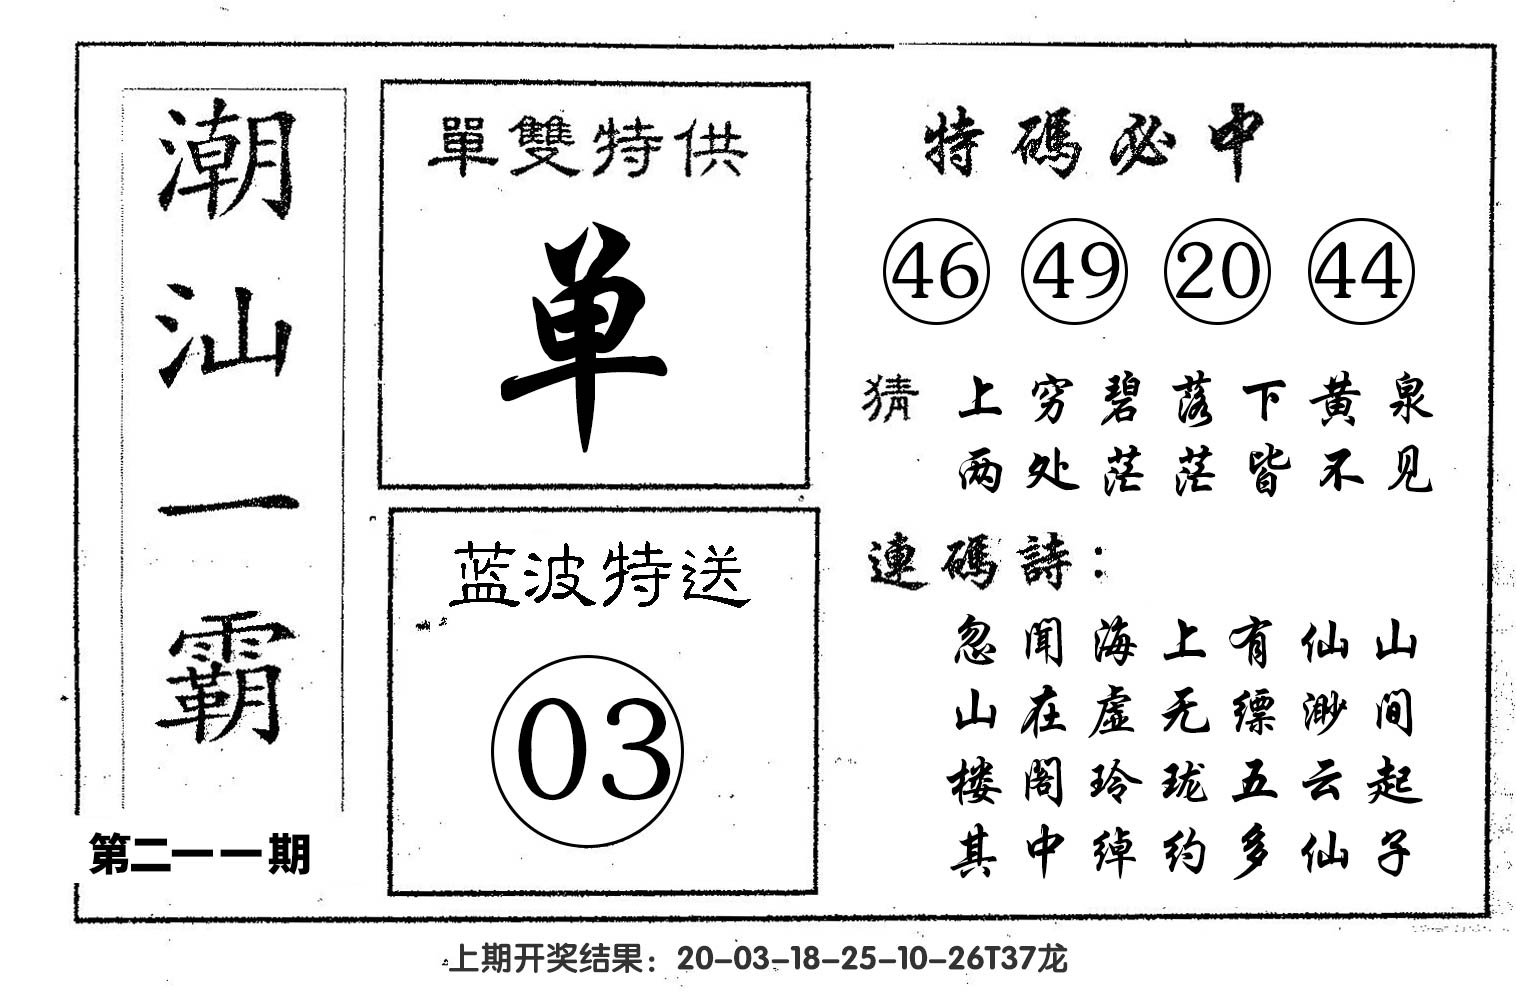 潮汕一霸
第二一一期
單雙特供
单
蓝波特送
03
特碼必中
46 49 20 44
猜 上穷碧落下黄泉
两处茫茫皆不见
連碼詩：
忽闻海上有仙山
山在虚无缥渺间
楼阁玲珑五云起
其中绰约多仙子
上期开奖结果：20-03-18-25-10-26T37龙